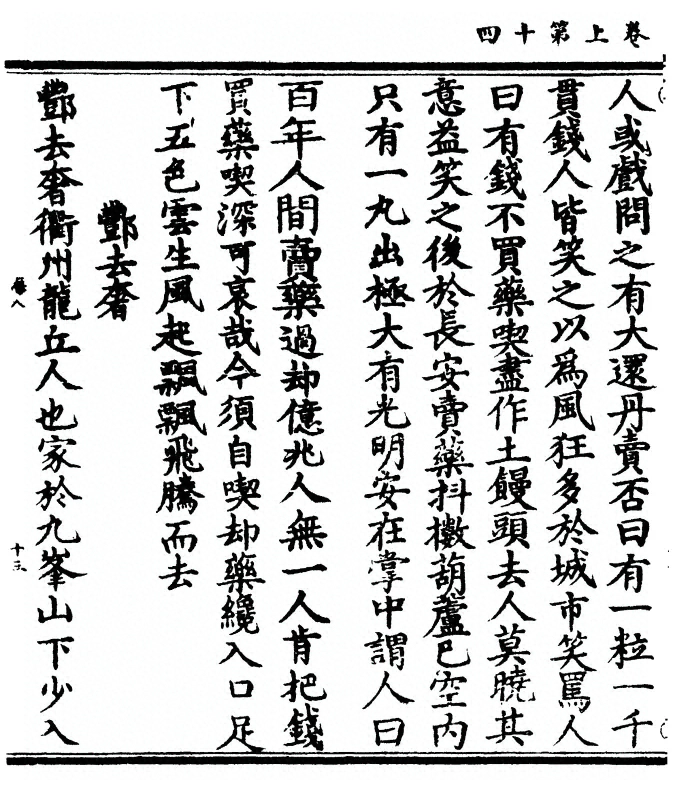 四十第上卷
人或戲問之有大還丹賣否曰有一粒一千
貫錢人皆笑之以為風狂多於城市笑罵人
曰有錢不買藥喫盡作土饅頭去人莫曉其
意益笑之後於長安賣藥抖擻葫蘆已空內
只有一丸出極大有光明安在掌中謂人曰
百年人間賣藥過却億兆人無一人肯把錢
買藥喫深可哀哉今須自喫却藥纔入口足
下五色雲生風起飄飄飛騰而去
酆去奢
酆去奢衢州龍丘人也家於九峯山下少入
卷八
十三